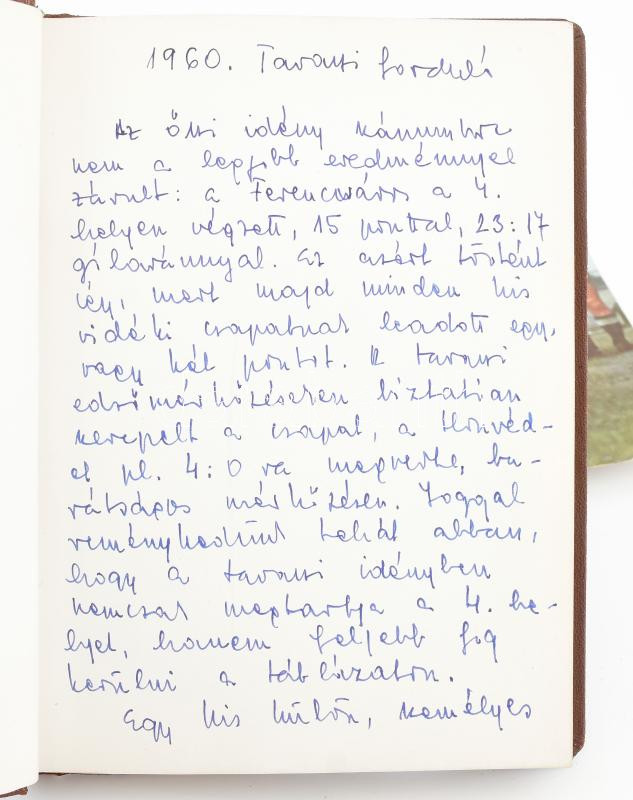 1960. Tavaszi forduló
Az őszi idény számunkra
nem a legjobb eredménnyel
zárult: a Ferencváros a 4.
helyen végzett, 15 ponttal, 23:17
gólaránnyal. Ez azért történt
így, mert majd minden kis
vidéki csapatnak leadott egy,
vagy két pontot. A tavaszi
edzőmérkőzéseken bíztatóan
szerepelt a csapat, a Honvéd-
et pl. 4:0 ra megverte, ba-
rátságos mérkőzésen. Joggal
reménykedtünk tehát abban,
hogy a tavaszi idényben
nemcsak megtartja a 4. he-
lyet, hanem feljebb fog
kerülni a táblázaton.
Egy kis külön, személyes